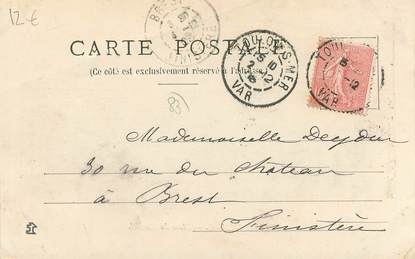 12-€
CARTE POSTALE
(Ce côté est exclusivement réservé à l'adresse)
BREST
FINISTERE
TOULON-S-MER
VAR
TOUL
VAR
(83)
Mademoiselle
30 rue du Chateau
à Brest
Finistère